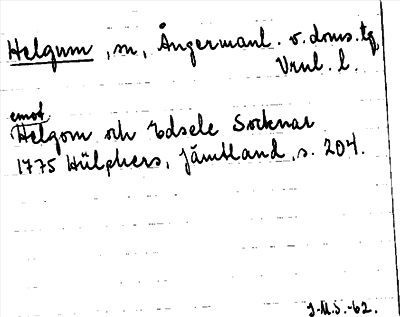 Helgum, sn, Ångermanl. v. doms. tg,
Vml. l.
emot
Helgom och Edsele Socknar
1775 Hülphers, Jämtland, s. 204.
J.M.S.-62.